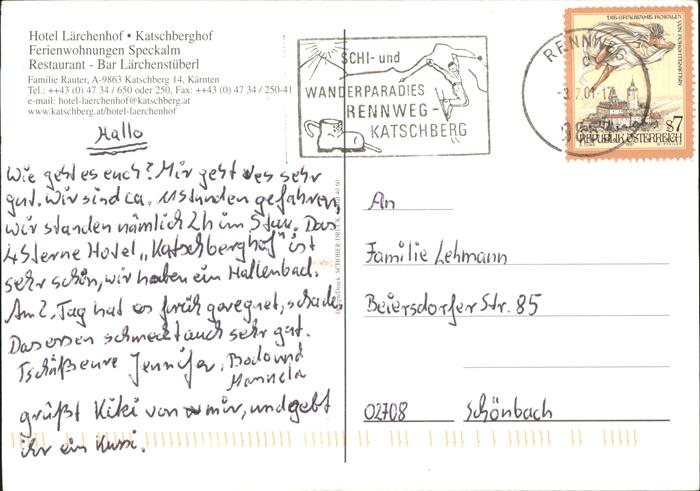 Hotel Lärchenhof • Katschberghof
Ferienwohnungen Speckalm
Restaurant - Bar Lärchenstüberl
Familie Rauter, A-9863 Katschberg 14, Kärnten
Tel.: ++43 (0) 47 34 / 650 oder 250, Fax: ++43 (0) 47 34 / 250-41
e-mail: hotel-laerchenhof@katschberg.at
www.katschberg.at/hotel-laerchenhof
SCHI- und
WANDERPARADIES
RENNWEG-
KATSCHBERG
RENNWEG
-3.7.01-17
DIE GRAUSAME ROSALIA VON FORCHTENSTEIN
S7
REPUBLIK ÖSTERREICH
Hallo
Wie geht es euch? Mir geht es sehr
gut. Wir sind ca. 11 stunden gefahren,
wir standen nämlich 2h im Stau. Das
4 Sterne Hotel „Katschberghof" ist
sehr schön, wir haben ein Hallenbad.
Am 2. Tag hat es früh geregnet, schade.
Das essen schmeckt auch sehr gut.
Tschüß eure Jennifer, Bodo und
Manuela
grüßt Kiki von mir, und gebt
ihr ein Kussi.
An
Familie Lehmann
Beiersdorfer Str. 85
02708 Schönbach